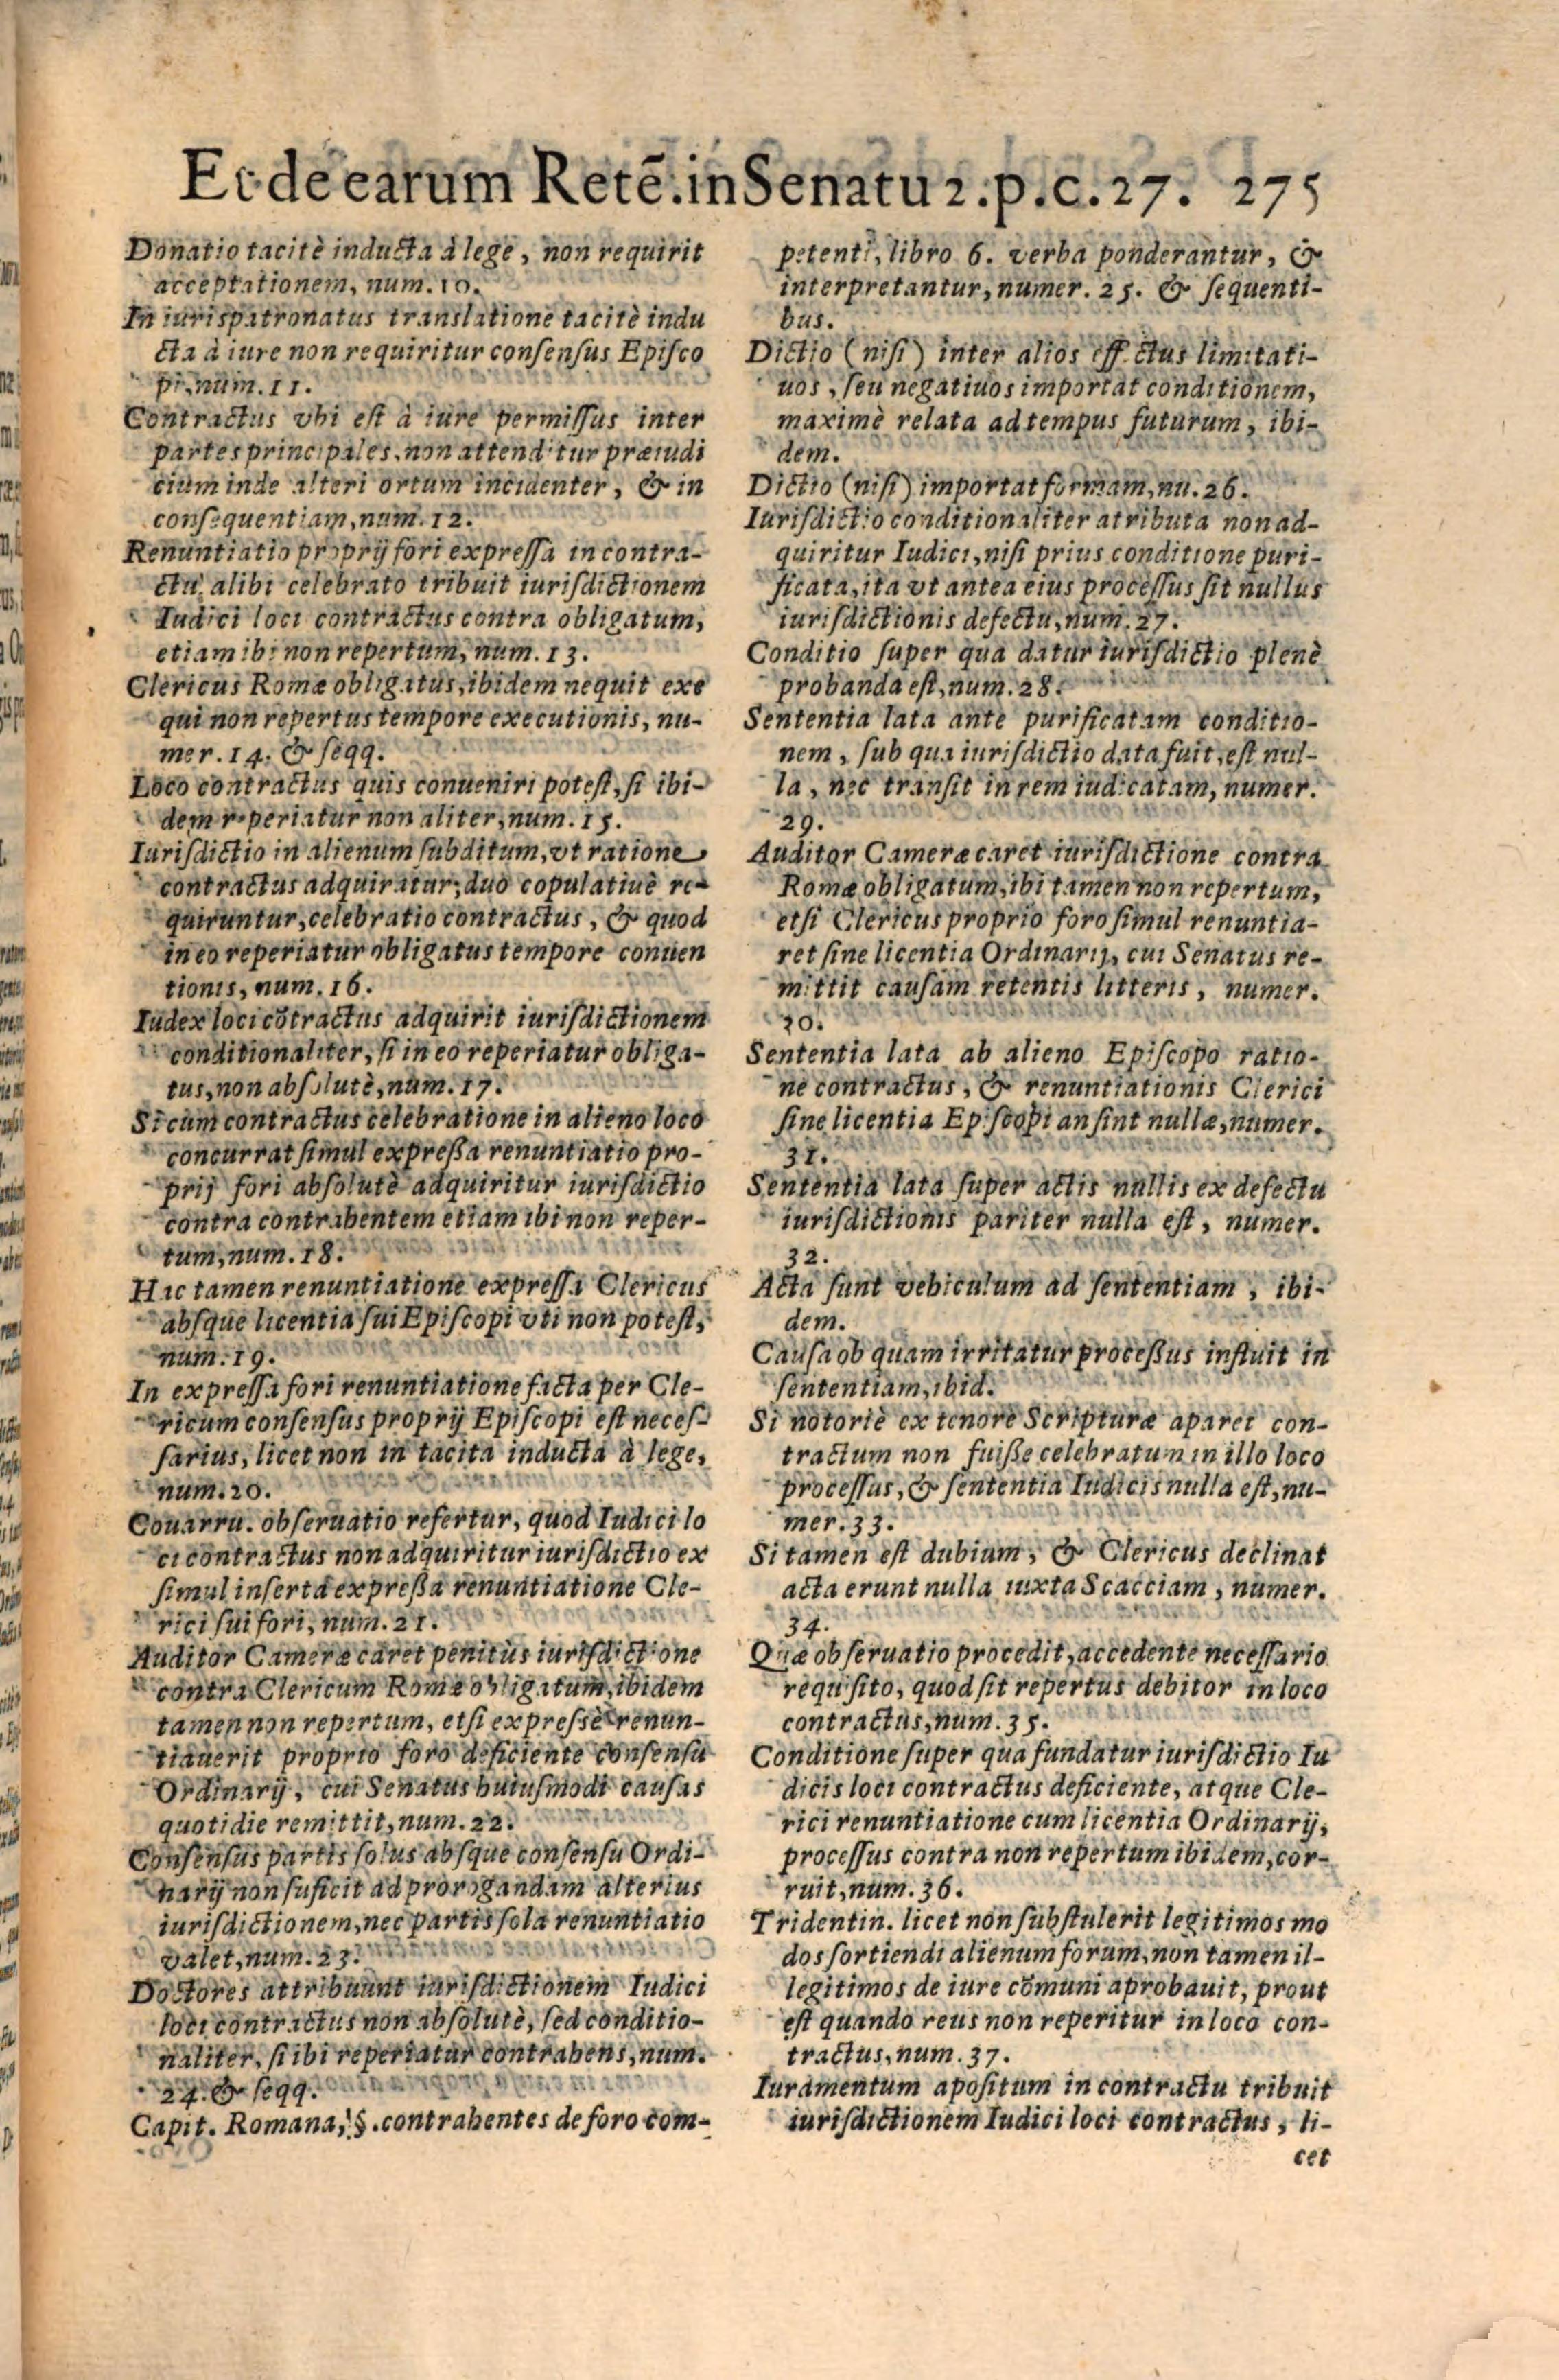 Et de earum Retẽ. in Senatu 2. p. c. 27. 275
Donatio tacitè inducta à lege, non requirit
acceptationem, num. 10.
In iurispatronatus translatione tacitè indu
cta à iure non requiritur consensus Episco
pi, num. 11.
Contractus vbi est à iure permissus inter
partes principales, non attenditur præiudi
cium inde alteri ortum incidenter, & in
consequentiam, num. 12.
Renuntiatio proprij fori expressa in contra-
ctu alibi celebrato tribuit iurisdictionem
Iudici loci contractus contra obligatum,
etiam ibi non repertum, num. 13.
Clericus Romæ obligatus, ibidem nequit exe
qui non repertus tempore executionis, nu-
mer. 14. & seqq.
Loco contractus quis conueniri potest, si ibi-
dem reperiatur non aliter, num. 15.
Iurisdictio in alienum subditum, vt ratione
contractus adquiratur; duo copulatiuè re-
quiruntur, celebratio contractus, & quod
in eo reperiatur obligatus tempore conuen
tionis, num. 16.
Iudex loci cõtractus adquirit iurisdictionem
conditionaliter, si in eo reperiatur obliga-
tus, non absolutè, num. 17.
Si cum contractus celebratione in alieno loco
concurrat simul expressa renuntiatio pro-
prij fori absolutè adquiritur iurisdictio
contra contrahentem etiam ibi non reper-
tum, num. 18.
Hac tamen renuntiatione expressa Clericus
absque licentia sui Episcopi vti non potest,
num. 19.
In expressa fori renuntiatione facta per Cle-
ricum consensus proprij Episcopi est neces-
sarius, licet non in tacita inducta à lege,
num. 20.
Couarru. obseruatio refertur, quod Iudici lo
ci contractus non adquiritur iurisdictio ex
simul inserta expressa renuntiatione Cle-
rici sui fori, num. 21.
Auditor Cameræ caret penitùs iurisdictione
contra Clericum Romæ obligatum, ibidem
tamen non repertum, etsi expressè renun-
tiauerit proprio foro deficiente consensu
Ordinarij, cui Senatus huiusmodi causas
quotidie remittit, num. 22.
Consensus partis solus absque consensu Ordi-
narij non suficit ad prorogandam alterius
iurisdictionem, nec partis sola renuntiatio
valet, num. 23.
Doctores attribuunt iurisdictionem Iudici
loci contractus non absolutè, sed conditio-
naliter, si ibi reperiatur contrahens, num.
24. & seqq.
Capit. Romana, §. contrahentes de foro com-
petenti, libro 6. verba ponderantur, &
interpretantur, numer. 25. & sequenti-
bus.
Dictio (nisi) inter alios effectus limitati-
uos, seu negatiuos importat conditionem,
maximè relata ad tempus futurum, ibi-
dem.
Dictio (nisi) importat formam, nu. 26.
Iurisdictio conditionaliter atributa non ad-
quiritur Iudici, nisi prius conditione puri-
ficata, ita vt antea eius processus sit nullus
iurisdictionis defectu, num. 27.
Conditio super qua datur iurisdictio plenè
probanda est, num. 28.
Sententia lata ante purificatam conditio-
nem, sub qua iurisdictio data fuit, est nul-
la, nec transit in rem iudicatam, numer.
29.
Auditor Cameræ caret iurisdictione contra
Romæ obligatum, ibi tamen non repertum,
etsi Clericus proprio foro simul renuntia-
ret sine licentia Ordinarij, cui Senatus re-
mittit causam retentis litteris, numer.
30.
Sententia lata ab alieno Episcopo ratio-
ne contractus, & renuntiationis Clerici
sine licentia Episcopi an sint nullæ, numer.
31.
Sententia lata super actis nullis ex defectu
iurisdictionis pariter nulla est, numer.
32.
Acta sunt vehiculum ad sententiam, ibi-
dem.
Causa ob quam irritatur processus influit in
sententiam, ibid.
Si notoriè ex tenore Scripturæ aparet con-
tractum non fuisse celebratum in illo loco
processus, & sententia Iudicis nulla est, nu-
mer. 33.
Si tamen est dubium, & Clericus declinat
acta erunt nulla iuxta Scacciam, numer.
34.
Quæ obseruatio procedit, accedente necessario
requisito, quod sit repertus debitor in loco
contractus, num. 35.
Conditione super qua fundatur iurisdictio Iu
dicis loci contractus deficiente, atque Cle-
rici renuntiatione cum licentia Ordinarij,
processus contra non repertum ibidem, cor-
ruit, num. 36.
Tridentin. licet non substulerit legitimos mo
dos sortiendi alienum forum, non tamen il-
legitimos de iure cõmuni aprobauit, prout
est quando reus non reperitur in loco con-
tractus, num. 37.
Iuramentum apositum in contractu tribuit
iurisdictionem Iudici loci contractus, li-
cet